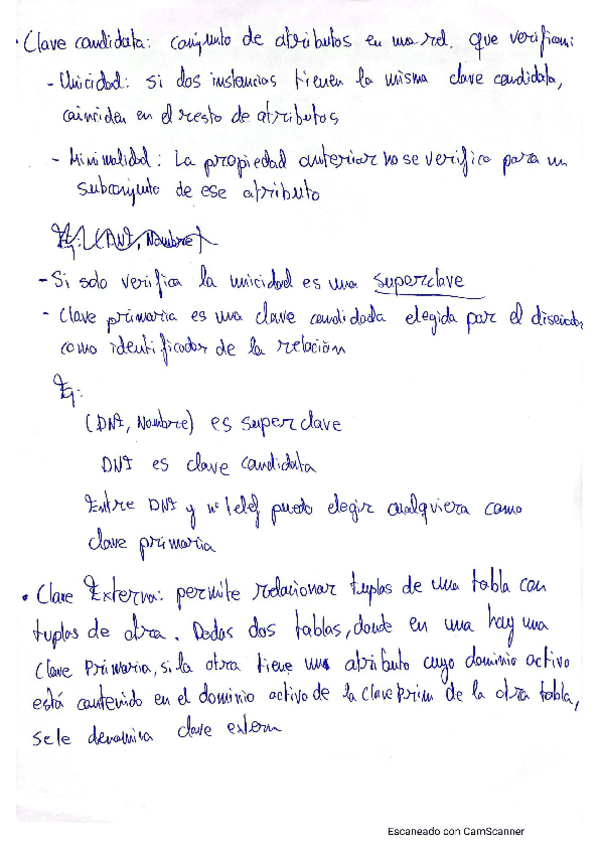 · Clave candidata: conjunto de atributos en una rel. que verifican:
- Unicidad: si dos instancias tienen la misma clave candidata,
coinciden en el resto de atributos
- Minimalidad: La propiedad anterior no se verifica para un
subconjunto de ese atributo
Ej: (DNI, Nombre)
- Si solo verifica la unicidad es una superclave
- Clave primaria es una clave candidada elegida por el diseñador
como identificador de la relación
Ej:
(DNI, Nombre) es superclave
DNI es clave candidata
Entre DNI y nº telef puedo elegir cualquiera como
clave primaria
• Clave Externa: permite relacionar tuplas de una tabla con
tuplas de otra. Dadas dos tablas, donde en una hay una
Clave Primaria, si la otra tiene un atributo cuyo dominio activo
está contenido en el dominio activo de la clave prim de la otra tabla,
se le denomina clave extern
Escaneado con CamScanner